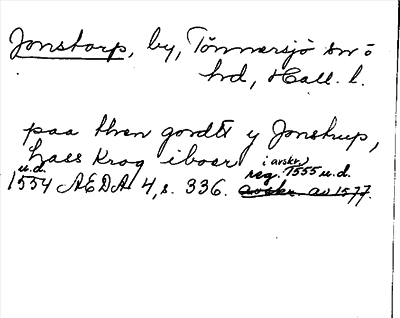 Jonstorp, by, Tönnersjö sn o
hrd, Hall. l.
paa then gordtt y Jonstrup,
Lass Krog iboer i avskr.
u.d. reg. 1555 u.d.
1554 AEDA 4, s. 336. avskr. av 1577.